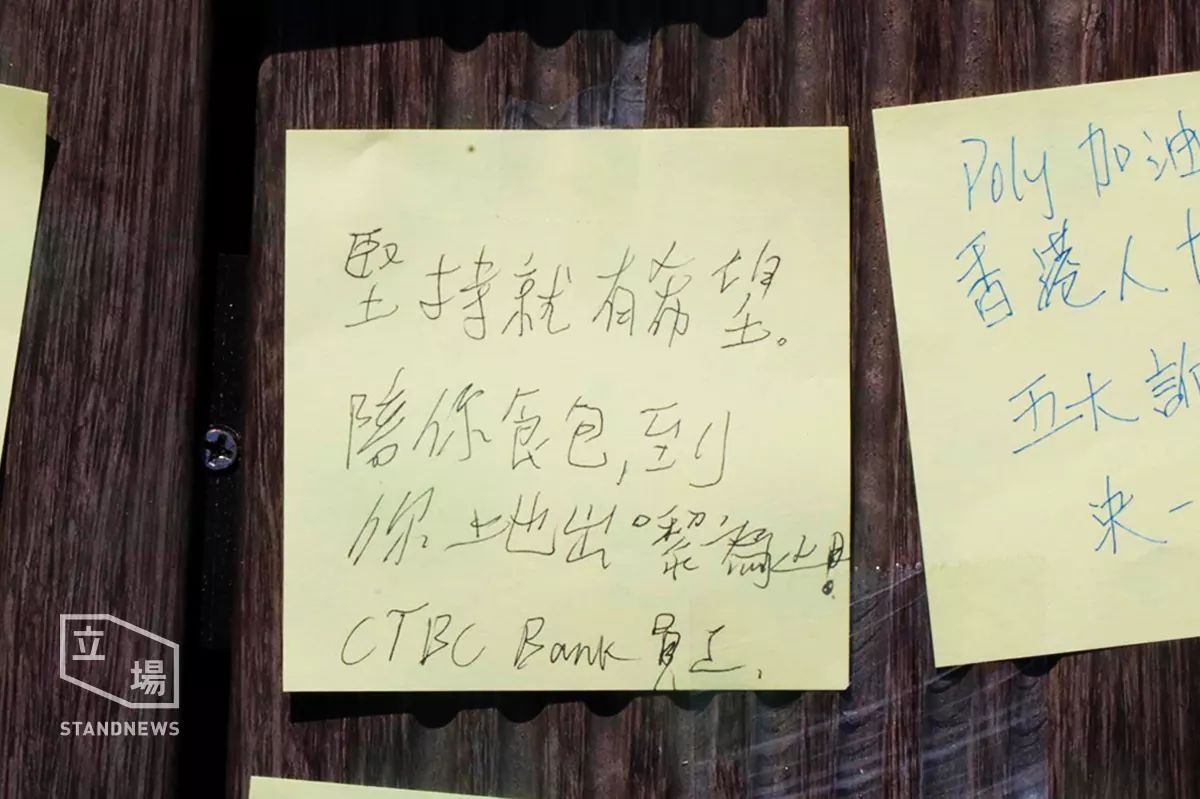 堅持就有希望。
陪你食包,到
你地出嚟為止!
CTBC Bank 員工.
Poly 加油
香港人
五大訴
來一
立場
STANDNEWS